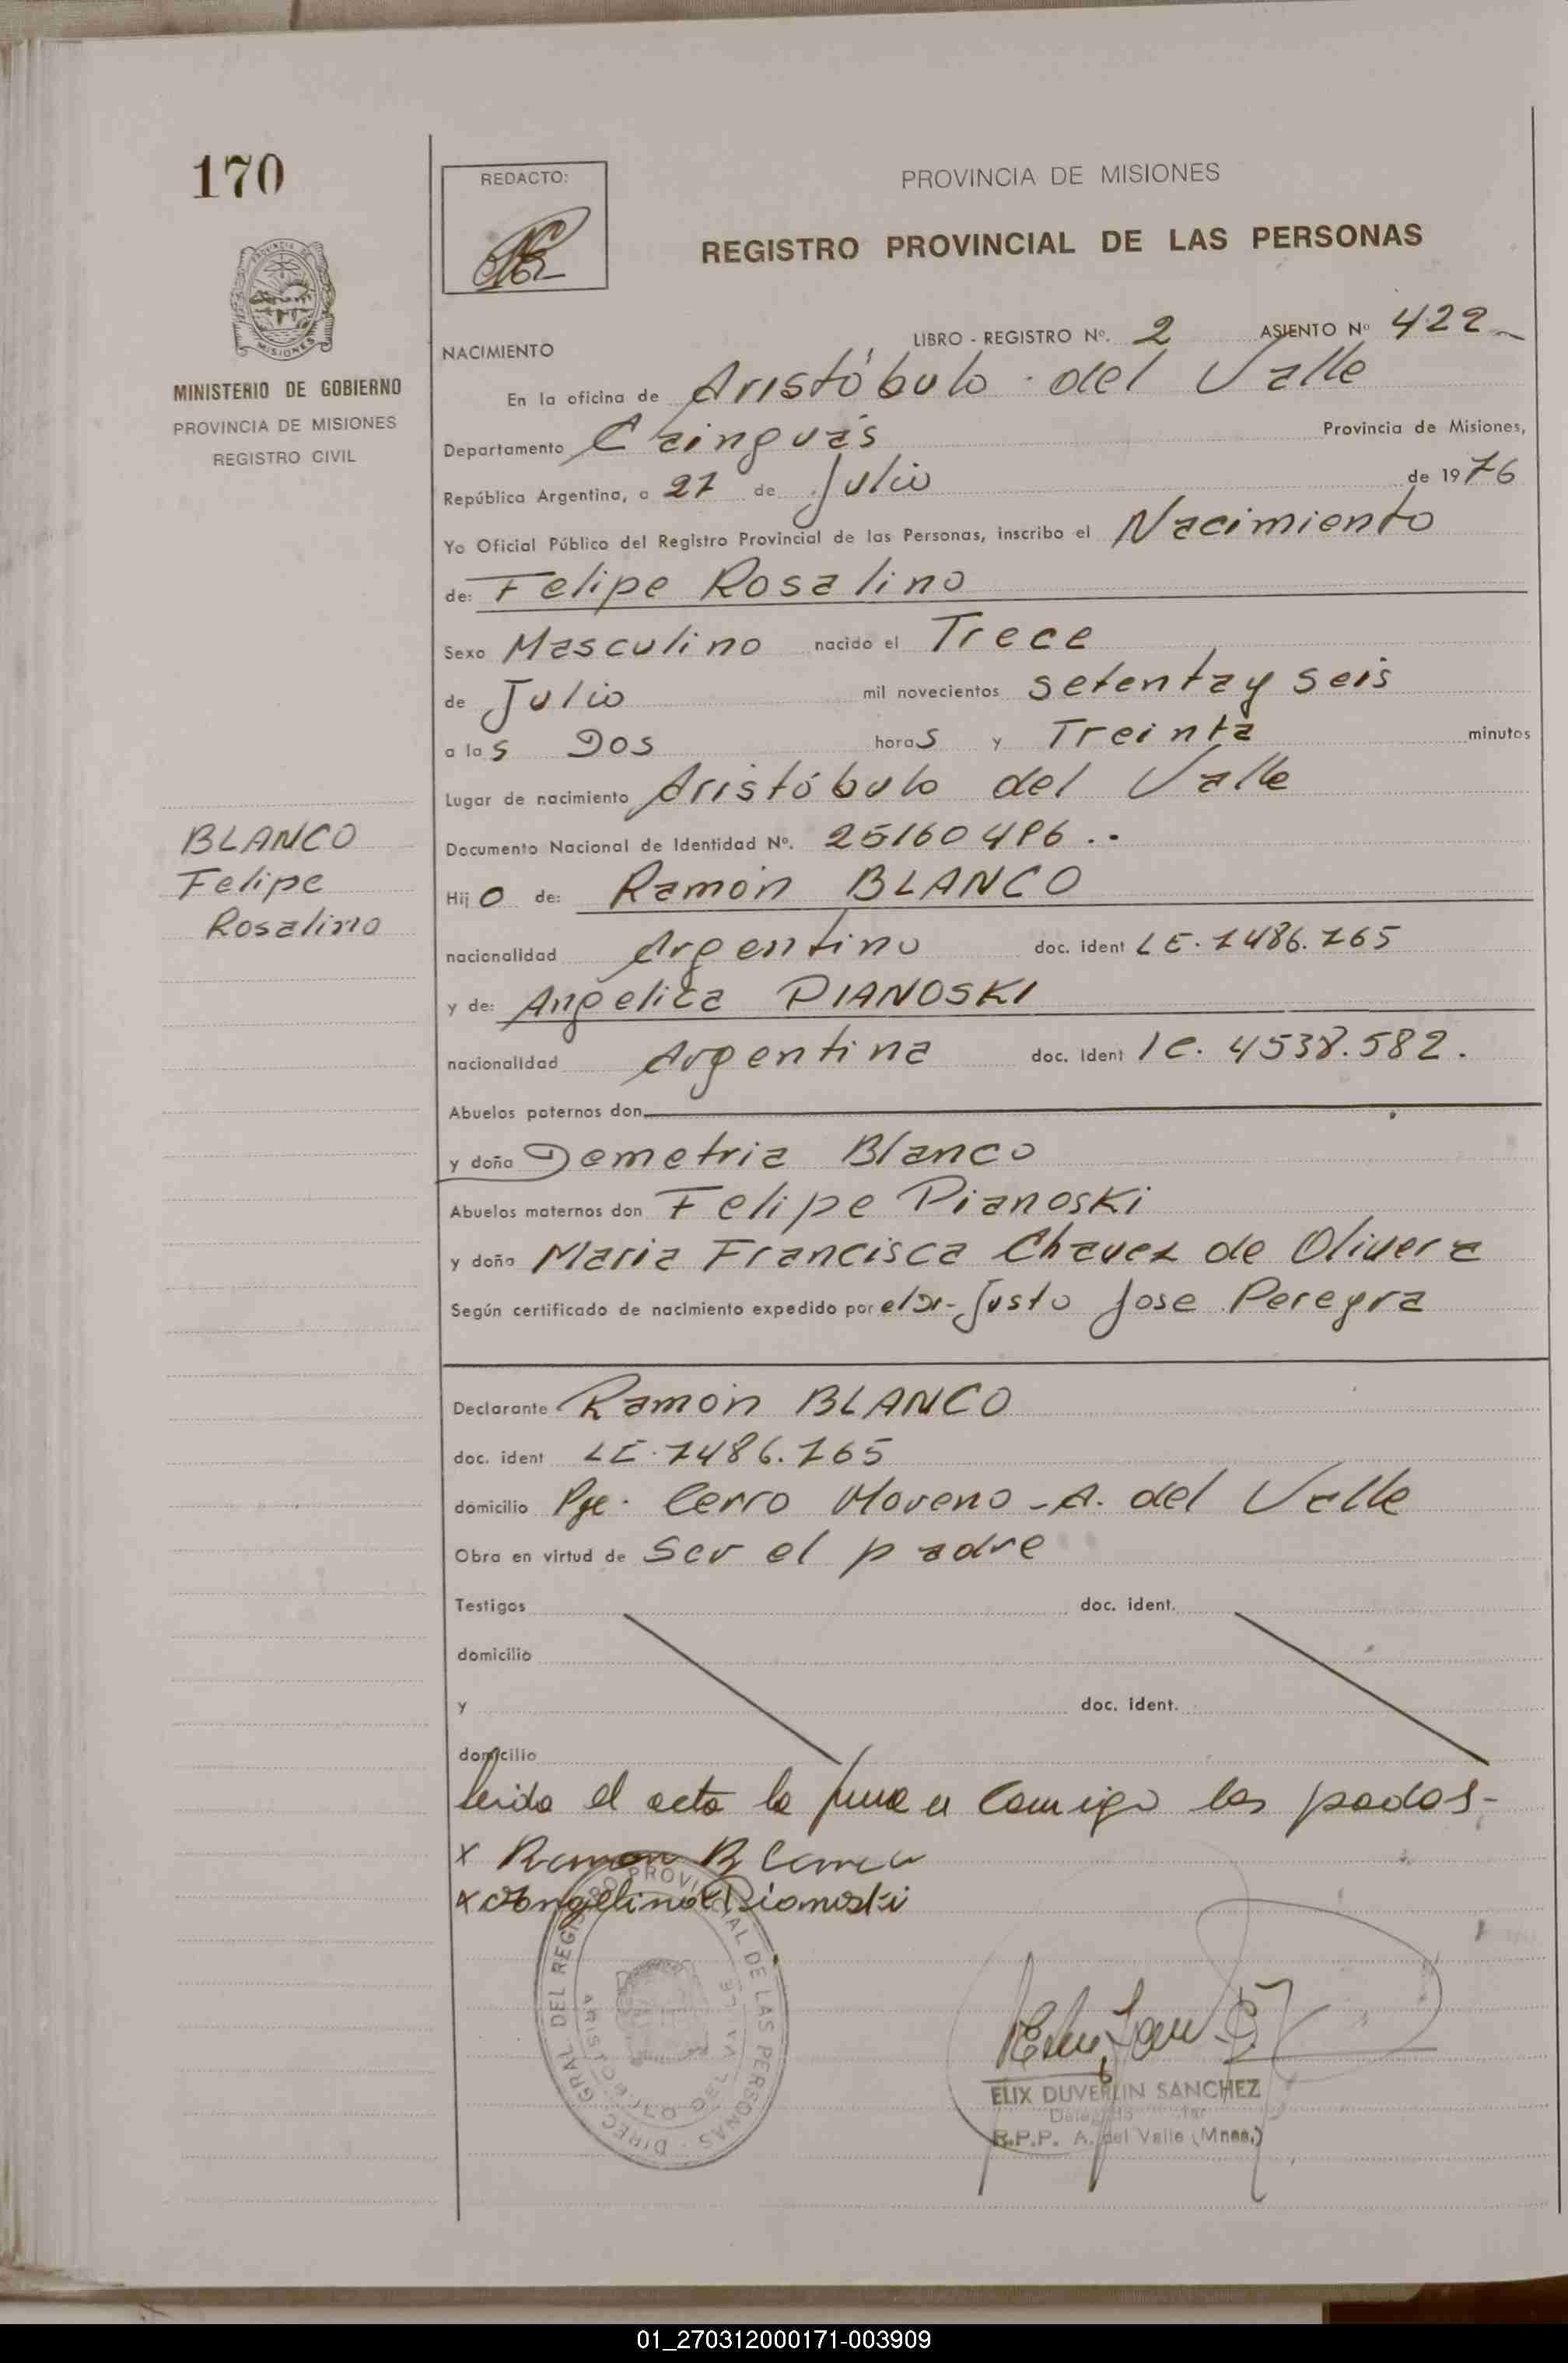 170
REDACTO:
PROVINCIA DE MISIONES
REGISTRO PROVINCIAL DE LAS PERSONAS
MINISTERIO DE GOBIERNO
PROVINCIA DE MISIONES
REGISTRO CIVIL
NACIMIENTO LIBRO - REGISTRO Nº. 2 ASIENTO Nº 422
En la oficina de Aristóbulo del Valle
Departamento Cainguás Provincia de Misiones,
República Argentina, a 27 de Julio de 1976
Yo Oficial Público del Registro Provincial de las Personas, inscribo el Nacimiento
de: Felipe Rosalino
Sexo Masculino nacido el Trece
de Julio mil novecientos setenta y seis
a las Dos horas y Treinta minutos
Lugar de nacimiento Aristóbulo del Valle
Documento Nacional de Identidad Nº. 25160496..
BLANCO
Felipe
Rosalino
Hijo de: Ramón BLANCO
nacionalidad Argentino doc. ident LE. 7486.765
y de: Angelica PIANOSKI
nacionalidad Argentina doc. ident lc. 4538.582.
Abuelos paternos don
y doña Demetria Blanco
Abuelos maternos don Felipe Pianoski
y doña Maria Francisca Chavez de Olivera
Según certificado de nacimiento expedido por el Dr- Justo Jose Pereyra
Declarante Ramón BLANCO
doc. ident LE. 7486.765
domicilio Pje. Cerro Moreno - A. del Valle
Obra en virtud de Ser el padre
Testigos doc. ident.
domicilio
y doc. ident.
domicilio
leida el acta la firman conmigo los padres-
x Ramon Blanco
x Angelina Pianoski
DIREC GRAL DEL REGISTRO PROVINCIAL DE LAS PERSONAS
ARISTOBULO DEL VALLE
ELIX DUVERLIN SANCHEZ
R.P.P. A. del Valle (Mnes.)
01_270312000171-003909